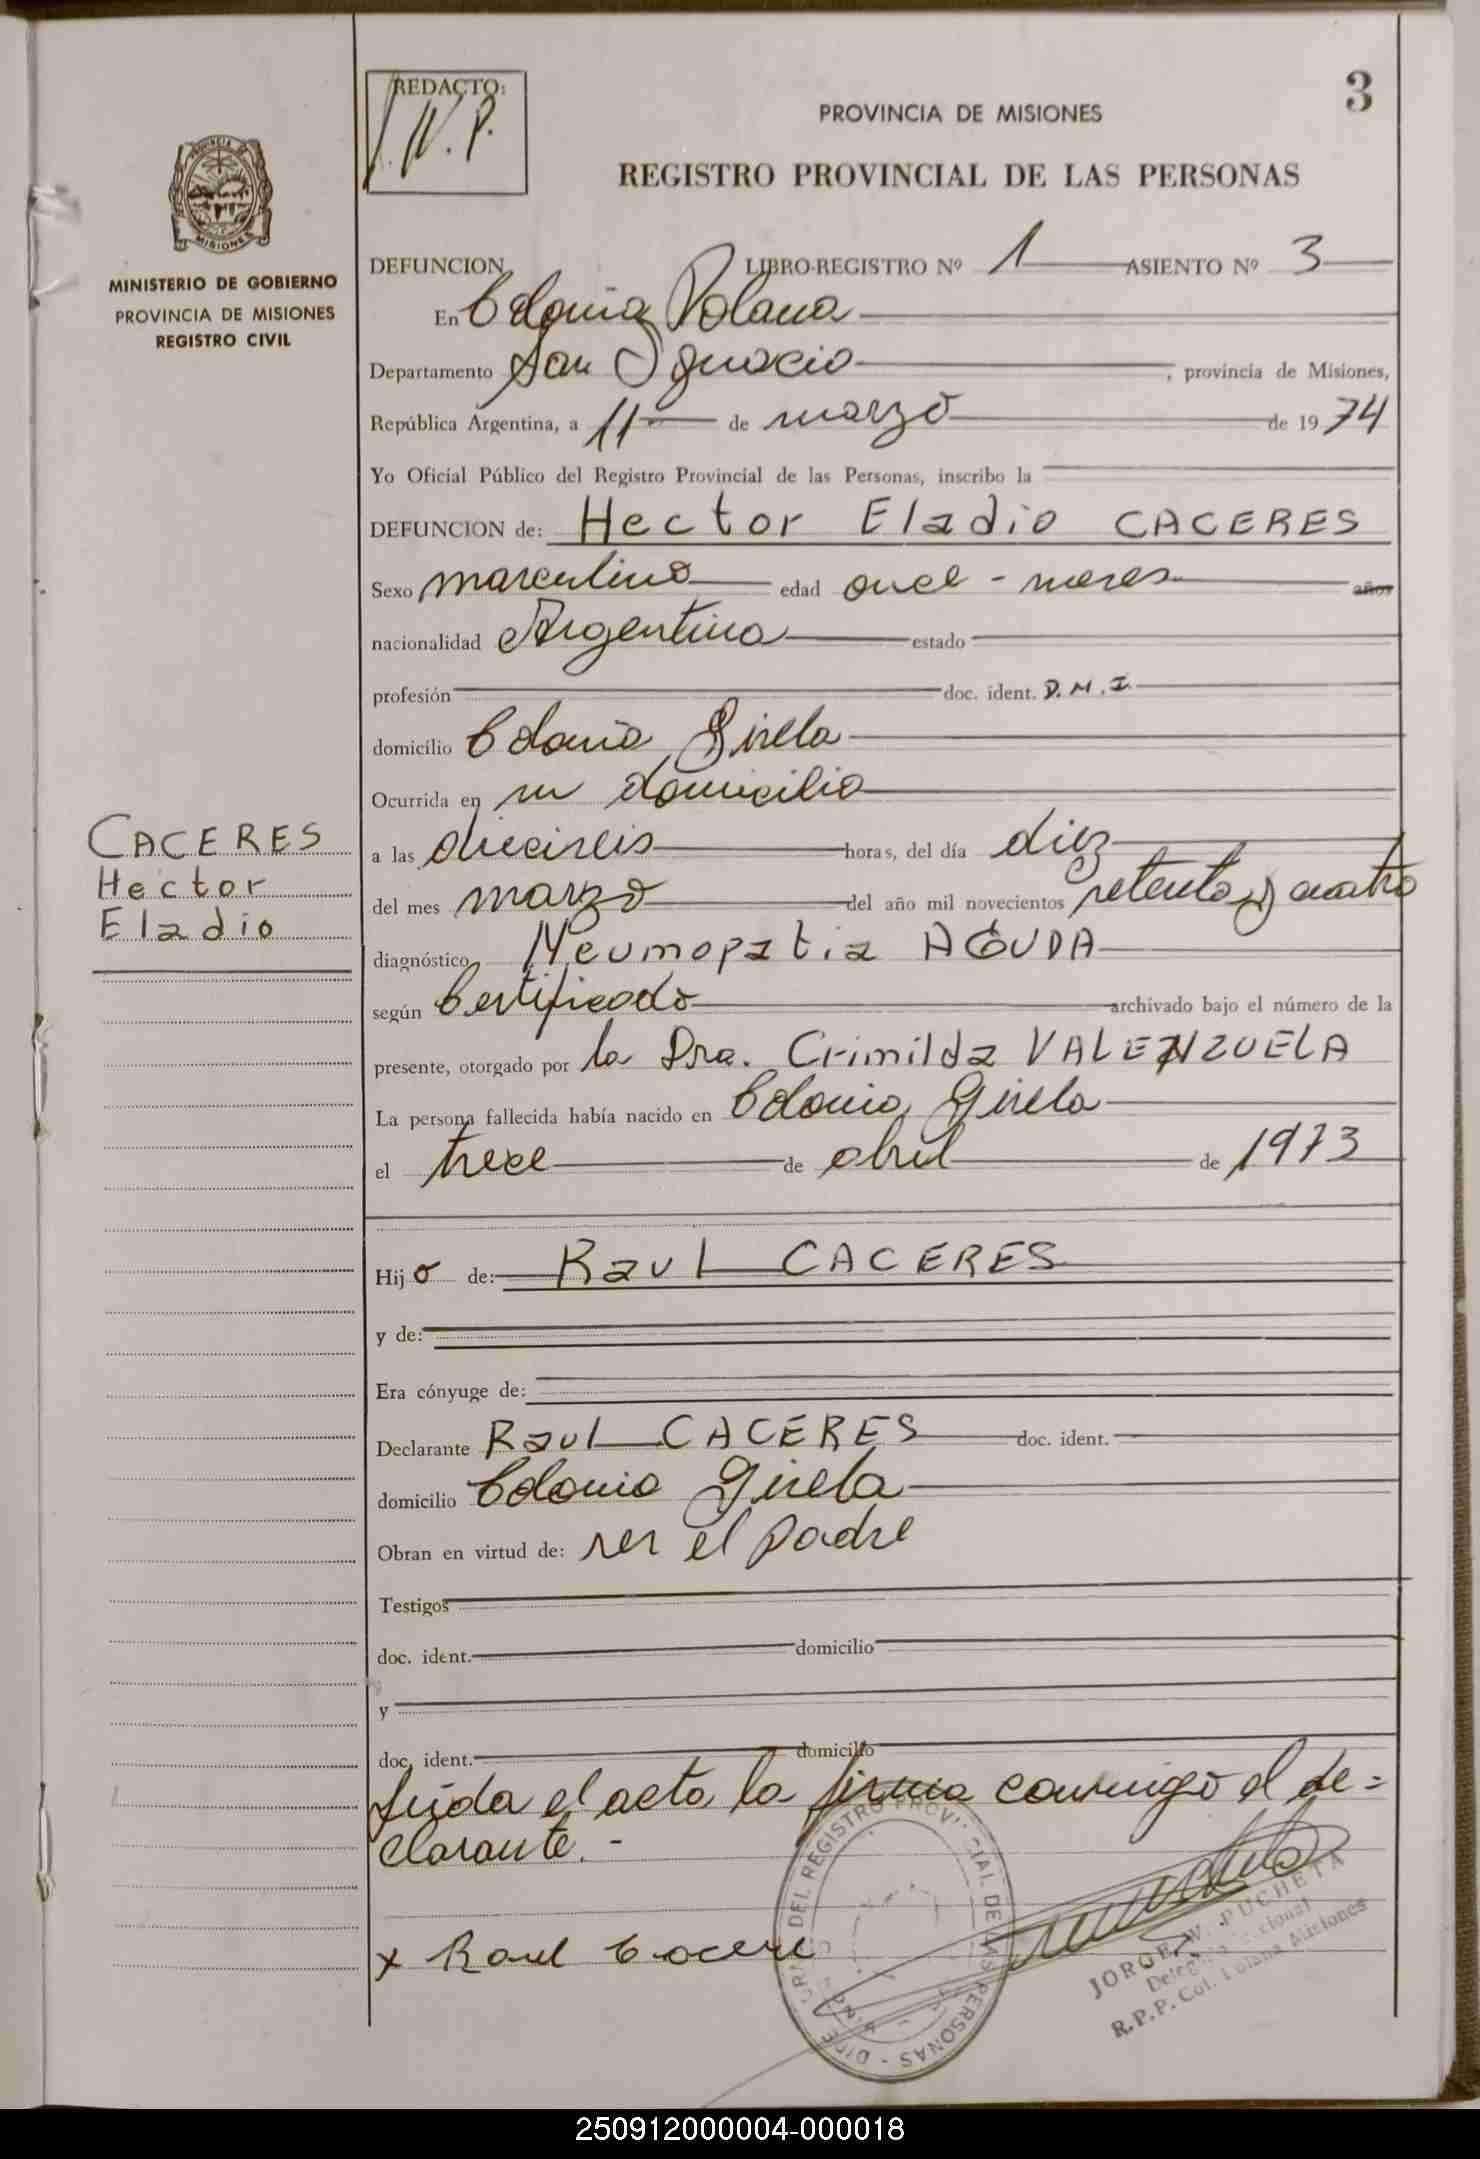 3
REDACTO:
J.W.P.
PROVINCIA DE MISIONES
REGISTRO PROVINCIAL DE LAS PERSONAS
MINISTERIO DE GOBIERNO
PROVINCIA DE MISIONES
REGISTRO CIVIL
DEFUNCION LIBRO-REGISTRO Nº 1 ASIENTO Nº 3
En Colonia Polana
Departamento San Ignacio, provincia de Misiones,
República Argentina, a 11 de marzo de 1974
Yo Oficial Público del Registro Provincial de las Personas, inscribo la
DEFUNCION de: Hector Eladio CACERES
Sexo masculino edad once - meses años
nacionalidad Argentina estado
profesión doc. ident. D.M.I.
domicilio Colonia Gisela
Ocurrida en su domicilio
a las dieciseis horas, del día diez
del mes marzo del año mil novecientos setenta y cuatro
diagnóstico Neumopatia AGUDA
según Certificado archivado bajo el número de la
presente, otorgado por la Dra. Crimilda VALENZUELA
La persona fallecida había nacido en Colonia Gisela
el trece de abril de 1973
CACERES
Hector
Eladio
Hijo de: Raul CACERES
y de:
Era cónyuge de:
Declarante Raul CACERES doc. ident.
domicilio Colonia Gisela
Obran en virtud de: ser el padre
Testigos
doc. ident. domicilio
y
doc. ident. domicilio
Leida el acta la firma conmigo el de=
clarante.-
x Raul Cacere
DEL REGISTRO PROVINCIAL DE LAS PERSONAS
JORGE W. PUCHETA
R.P.P. Col. Polana Misiones
250912000004-000018